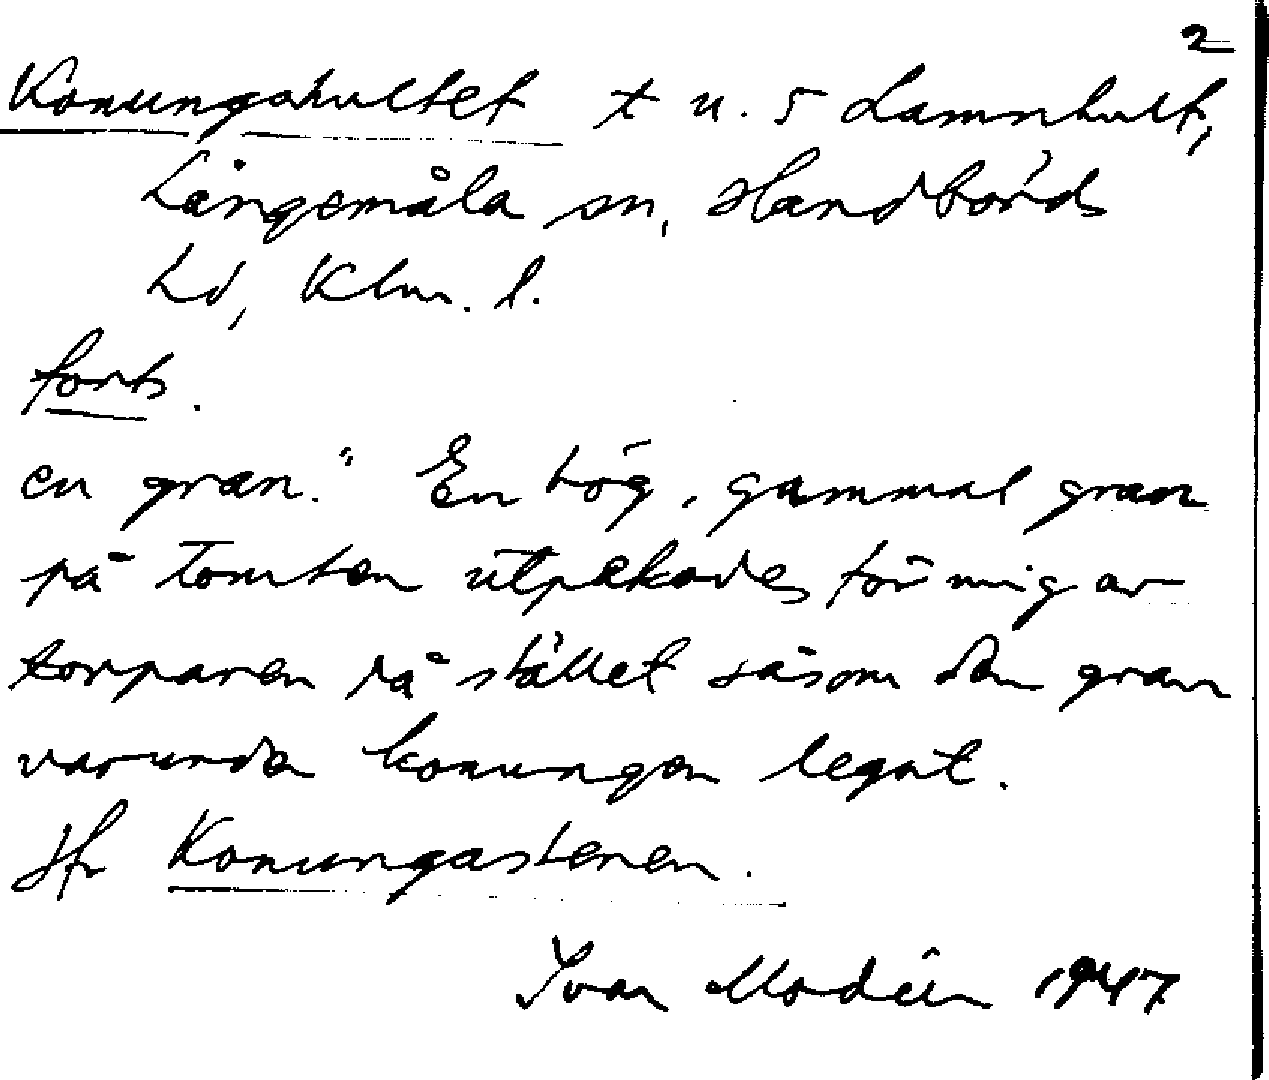 2
Konungshultet t u. 5 Lamnhult,
Långemåla sn, Handbörds
hd, Klm. l.
forts.
en gran." En hög, gammal gran
på tomten utpekades för mig av
torparen på stället såsom den gran
varunder konungen legat.
Jfr Konungastenen.
Ivar Modéer 1947